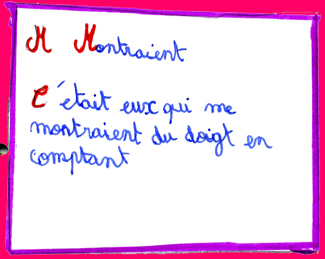 M Montraient
C'était eux qui me
montraient du doigt en
comptant